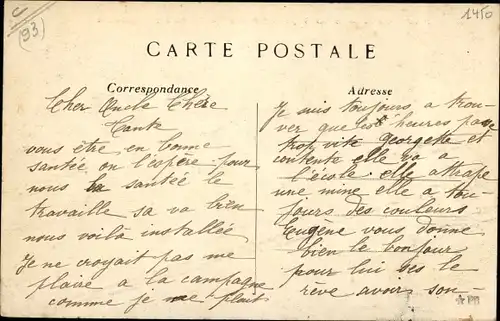 (93)
1450
CARTE POSTALE
Correspondance
Cher Oncle Chère
Tante
vous être en bonne
santée on l'espère pour
nous la santée le
travaille sa va bien
nous voilà installée
Je ne croyait pas me
plaire a la campagne
comme je me plait
Adresse
Je suis toujours a trou-
ver que les heures passe
trop vite Georgette et
contente elle va a
l'école elle attrape
une mine elle a tou-
jours des couleurs
Eugène vous donne
bien le bonjour
pour lui ses le
rève avoir son-